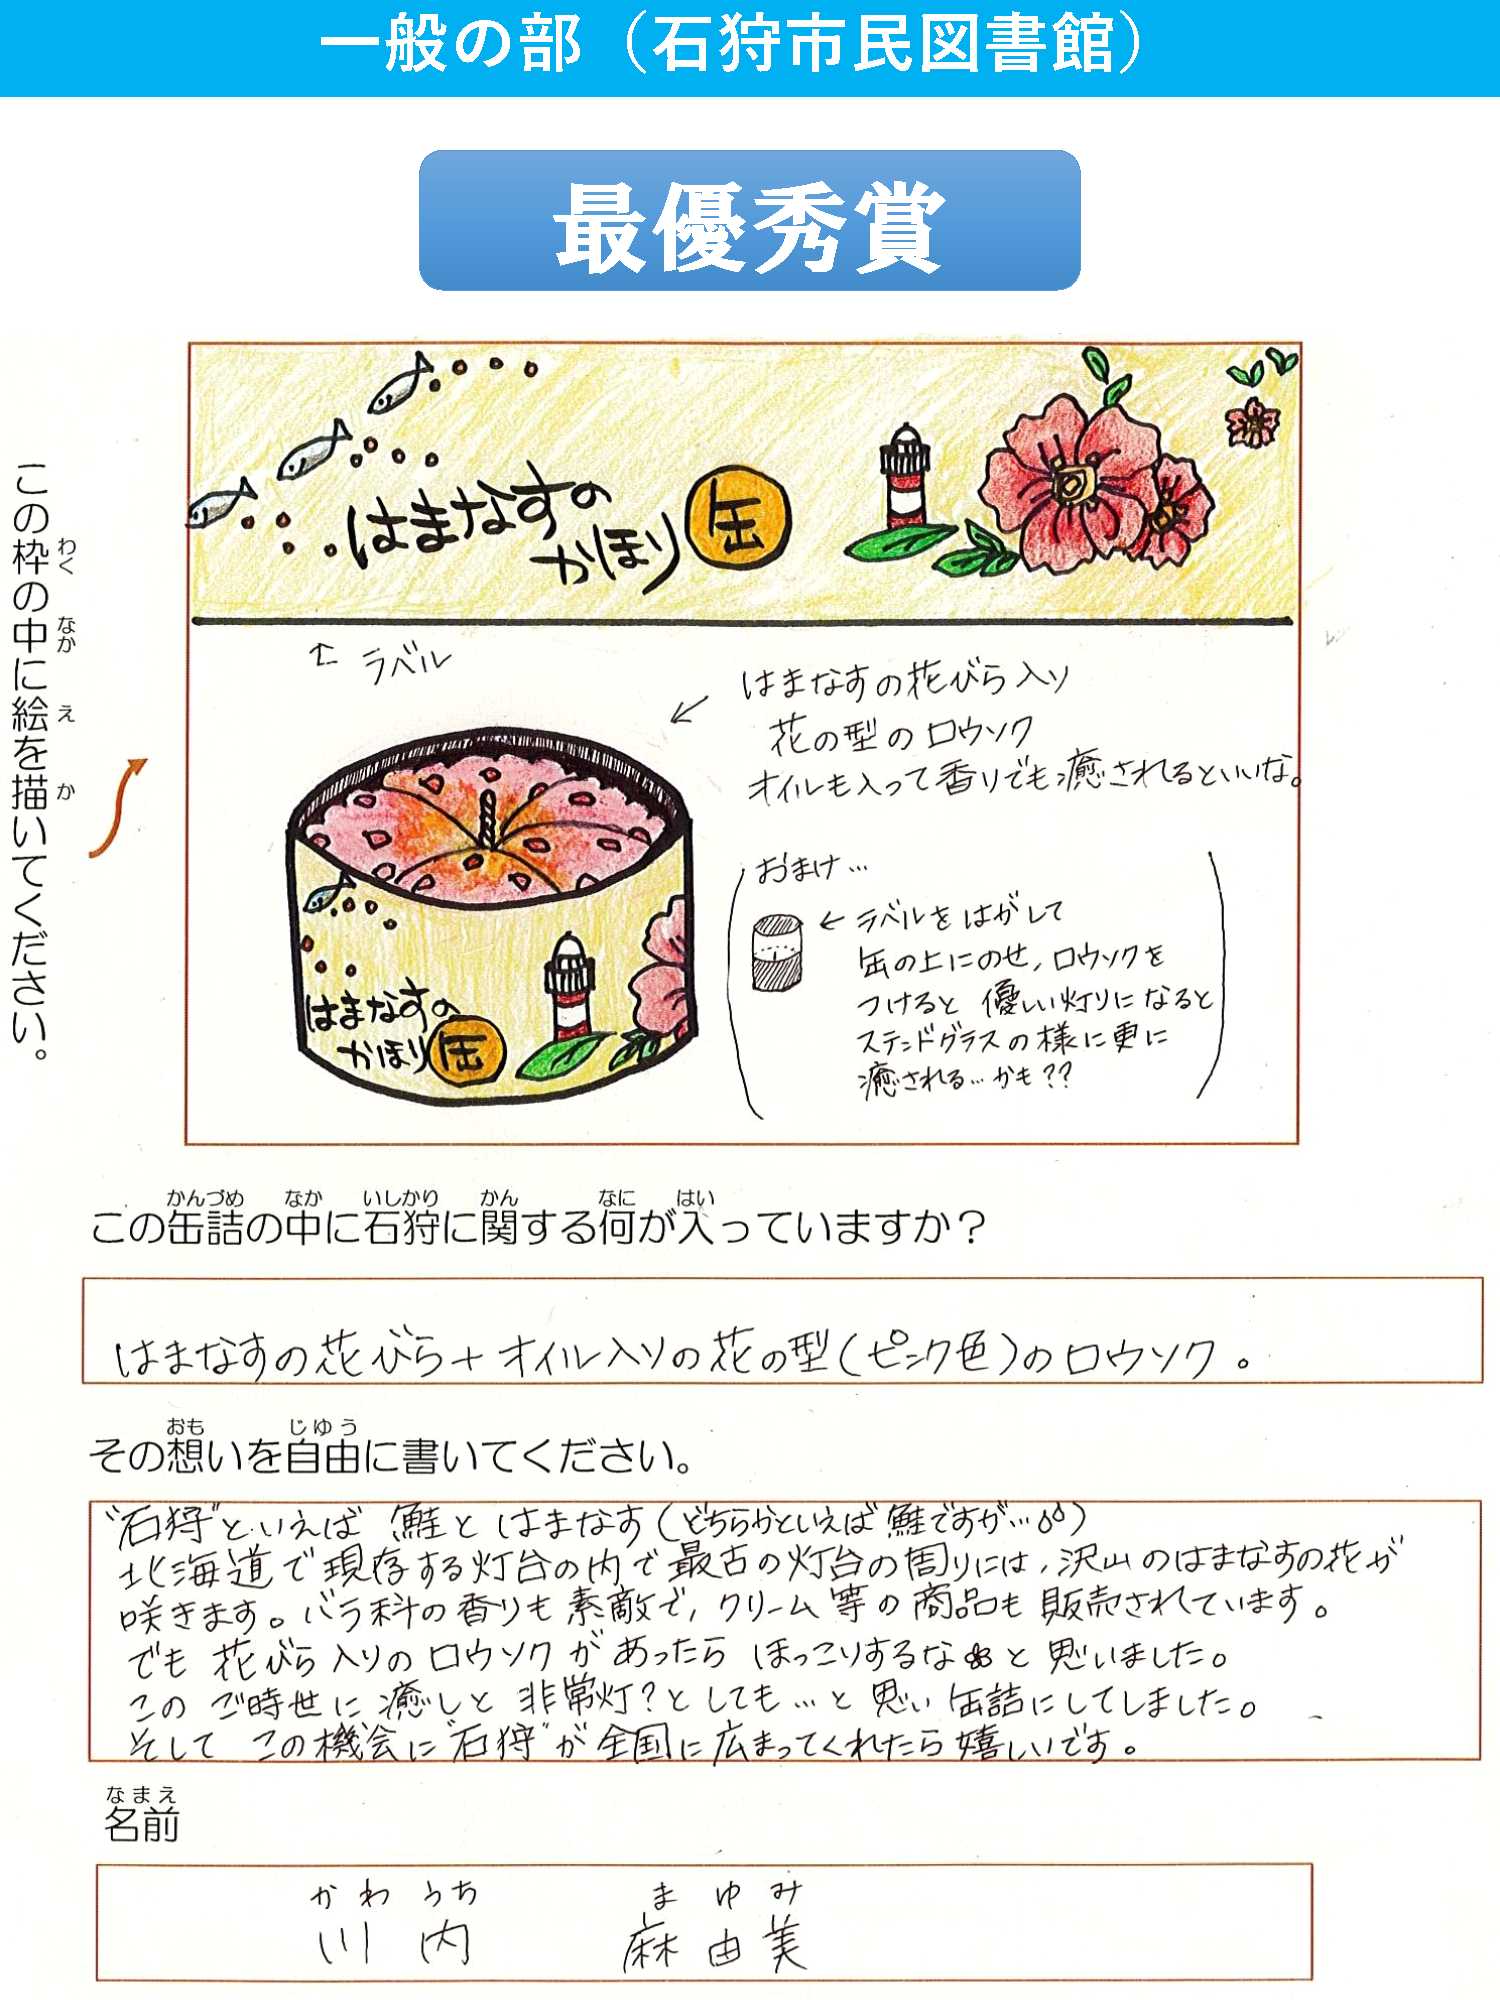 一般の部（石狩市民図書館）
最優秀賞
この枠の中に絵を描いてください。
わく
なか
え
か
はまなすの
かほり缶
↑ ラベル
はまなすの花びら入り
花の型のロウソク
オイルも入って香りでも癒されるといいな。
はまなすの
かほり缶
おまけ…
←ラベルをはがして
缶の上にのせ,ロウソクを
つけると 優しい灯りになると
ステンドグラスの様に更に
癒される…かも??
かんづめ なか いしかり かん なに はい
この缶詰の中に石狩に関する何が入っていますか？
はまなすの花びら+オイル入りの花の型(ピンク色)のロウソク。
おも じゆう
その想いを自由に書いてください。
"石狩"といえば 鮭と はまなす(どちらかといえば鮭ですが…)
北海道で現存する灯台の内で最古の灯台の周りには,沢山のはまなすの花が
咲きます。バラ科の香りも素敵で,クリーム等の商品も販売されています。
でも 花びら入りのロウソクがあったら ほっこりするなと思いました。
この ご時世に癒しと 非常灯?としても…と思い缶詰にしてしました。
そして この機会に"石狩"が全国に広まってくれたら嬉しいです。
なまえ
名前
かわうち まゆみ
川内 麻由美